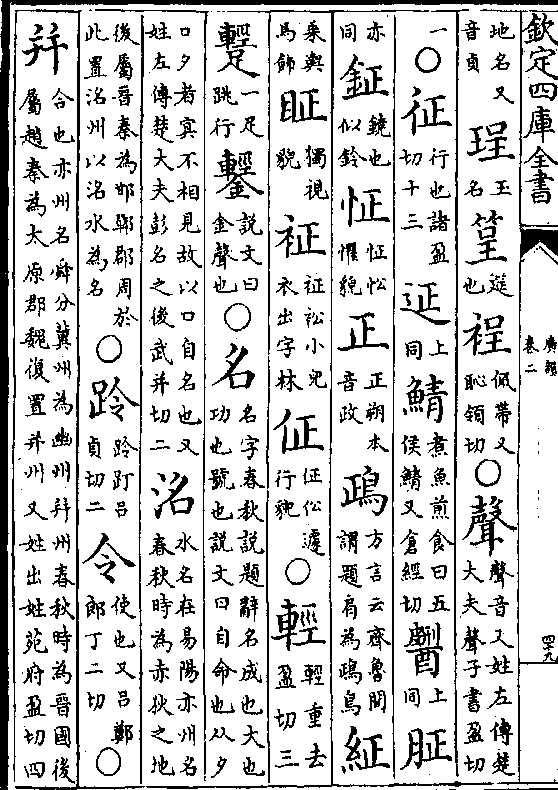 欽定四庫全書
廣韻
卷二
四十九
地名又音貞 珵玉名 筳筳也 裎佩帶又恥領切 ○聲聲音又姓左傳楚大夫聲子書盈切
一○征行也諸盈切十三 𨒌上同 鯖煮魚煎食曰五侯鯖又倉經切 䣆上同 䏃
亦同 鉦鐃也似鈴 怔怔忪懼貌 正正朔本音政 鴊方言云齊魯間謂題肩為鴊鳥 紅
乘輿馬飾 眐獨視貌 䘣䘣衳小兒衣出字林 佂佂伀遽行貌 ○輕輕重去盈切三
䡖一足跳行 鑋說文曰金聲也 ○名名字春秋說題辭名成也大也功也號也說文曰自命也从夕
口夕者冥不相見故以口自名也又姓左傳楚大夫彭名之後武并切二 洺水名在易陽亦州名春秋時為赤狄之地
後屬晉秦為邯鄲郡周於此置洺州以洺水為名 ○跉跉𨀉呂貞切二 令使也又呂鄭郎丁二切 ○
并合也亦州名舜分冀州為幽州并州春秋時為晉國後屬趙秦為太原郡魏復置并州又姓出姓苑府盈切四